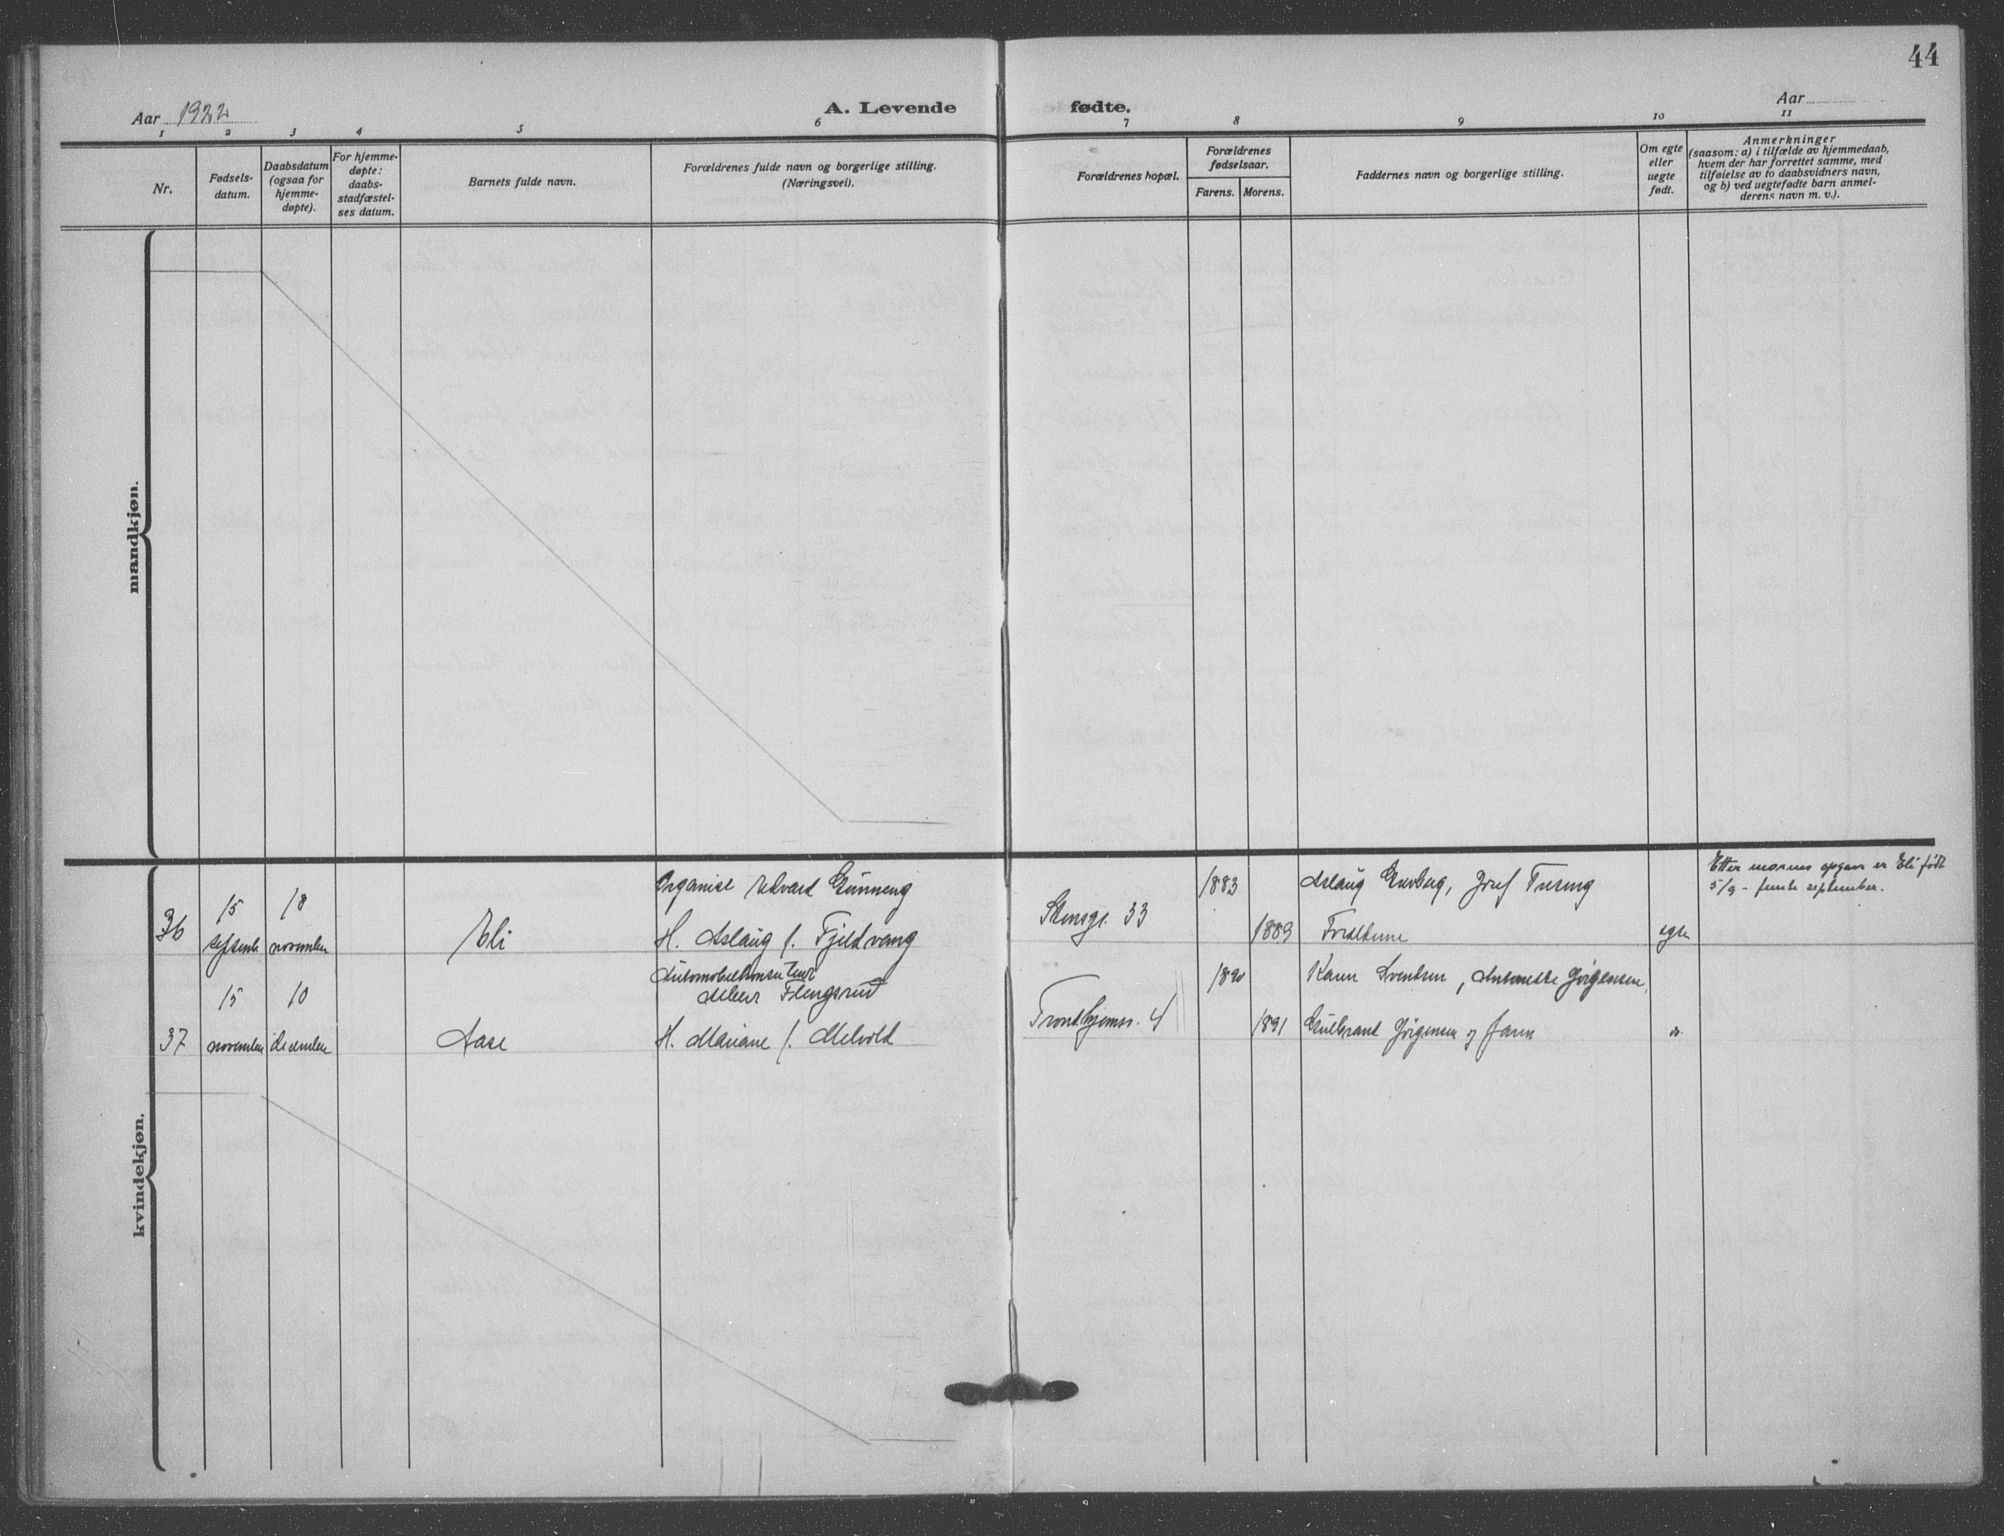 44
Aar 1922
A. Levende fødte.
Aar
1 2 3 4 5 6 7 8 9 10 11
Nr.
Fødsels-
datum.
Daabsdatum
(ogsaa for
hjemme-
døpte).
For hjemme-
døpte:
daabs-
stadfæstel-
ses datum.
Barnets fulde navn.
Forældrenes fulde navn og borgerlige stilling.
(Næringsvei).
Forældrenes hopæl.
Forældrenes
fødselsaar.
Farens. Morens.
Faddernes navn og borgerlige stilling.
Om egte
eller
uegte
født.
Anmerkninger
(saasom: a) i tilfælde av hjemmedaab,
hvem der har forrettet samme, med
tilføielse av to daabsvidners navn,
og b) ved uegtefødte barn anmel-
derens navn m. v.).
mandkjøn.
kvindekjøn.
36
15
septembr
18
november
Eli
Organist Edvard Gunneng
H. Aslaug f. Fjeldvang
Stensgt. 33
1883
1889
Aslaug Josef
Foreldrene
egte
Etter morens opgave er Eli født
5/9 - femte september.
37
15
november
10
december
Aase
Albert Flengsrud
H. Mariane f. Melvold
Trondhjemsv. 4
1890
1891
Karen Svendsen, Antonette Jørgensen,
Gulbrand Jørgensen og faren